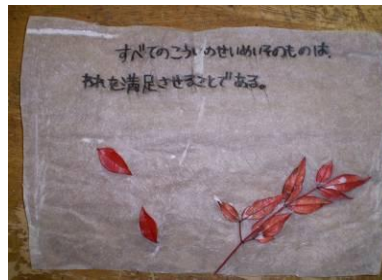 すべてのこういのせいめいそのものは、
おれを満足させることである。